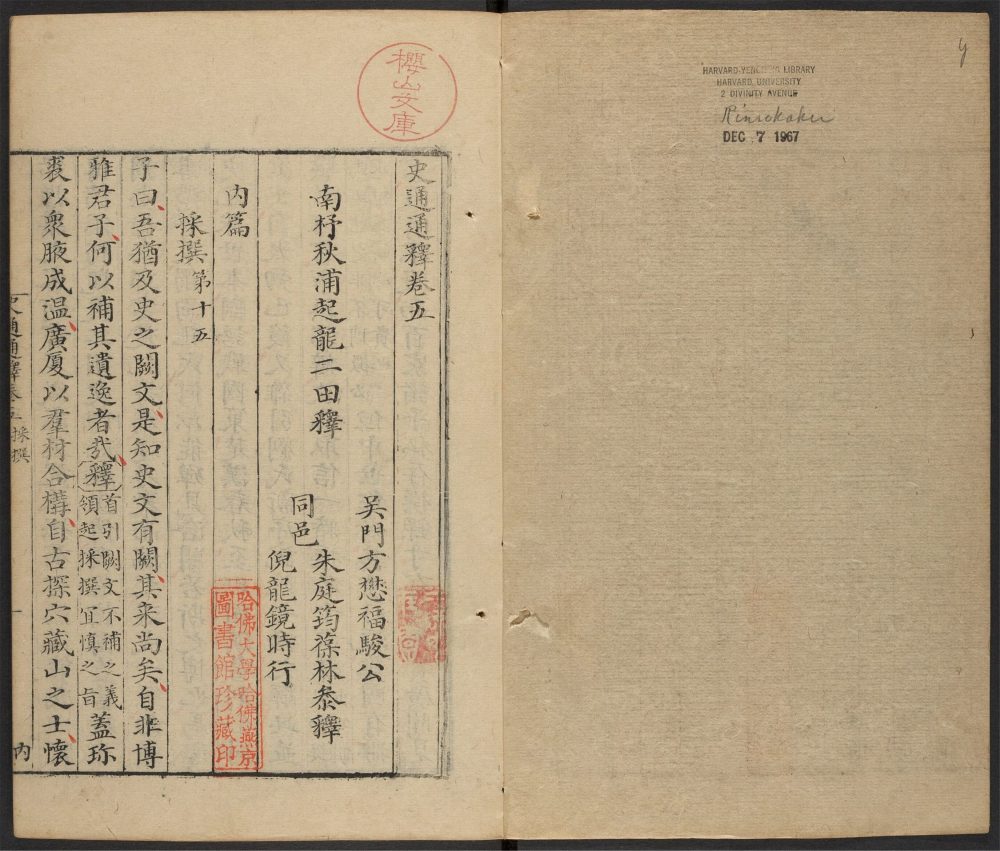 y
HARVARD-YENCHING LIBRARY
HARVARD UNIVERSITY
2 DIVINITY AVENUE
Rinrokaku
DEC 7 1967
櫻山文庫
史通通釋卷五
南杼秋浦起龍二田釋
吳門方懋福駿公
同邑
朱庭筠葆林叅釋
倪龍鏡時行
內篇
哈佛大學哈佛燕京
圖書館珍藏印
採撰第十五
子曰吾猶及史之闕文是知史文有闕其来尚矣自非博
雅君子何以補其遺逸者㢤釋首引闕文不補之義
領起採撰宜慎之旨蓋珎
裘以衆腋成温廣厦以羣材合構自古探穴藏山之士懷
史通通釋卷五 採撰 一 內